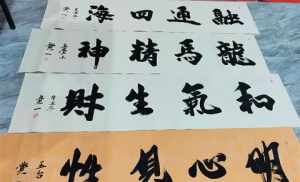 融通四海
龍馬精神
和氣生財
明心見性
五台